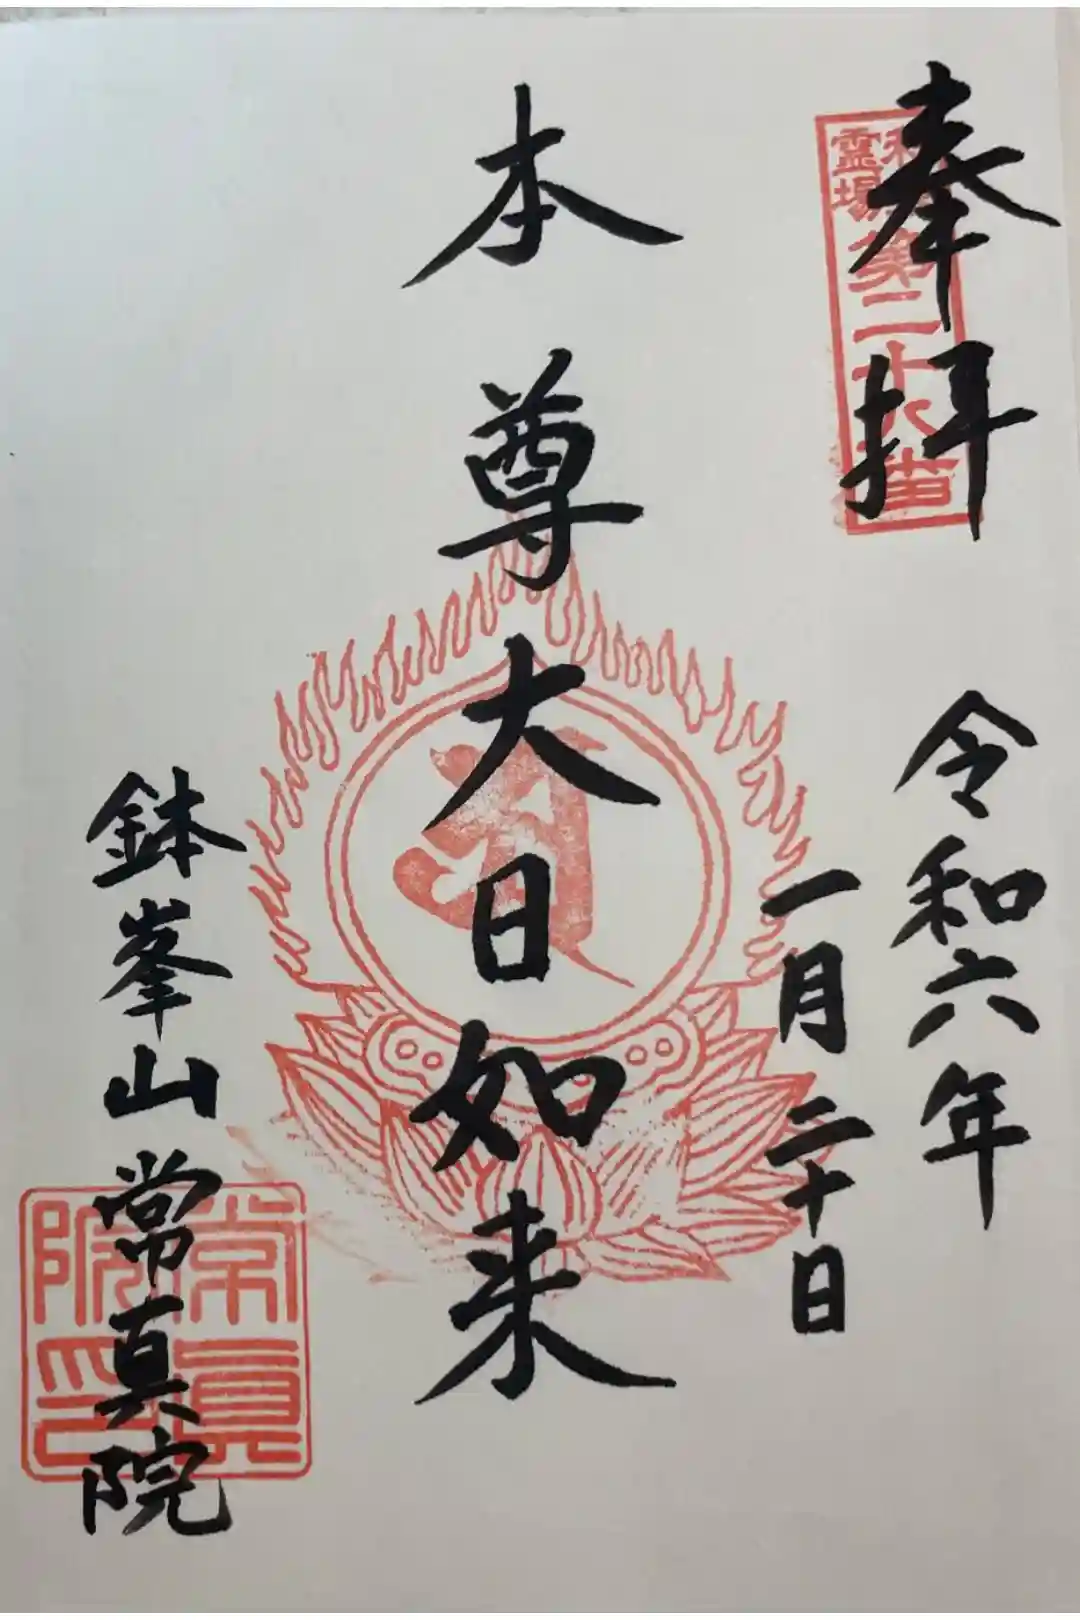 奉拝
令和六年
一月二十日
本尊大日如来
鉢峯山常真院
霊場
第二十八番
常真院印